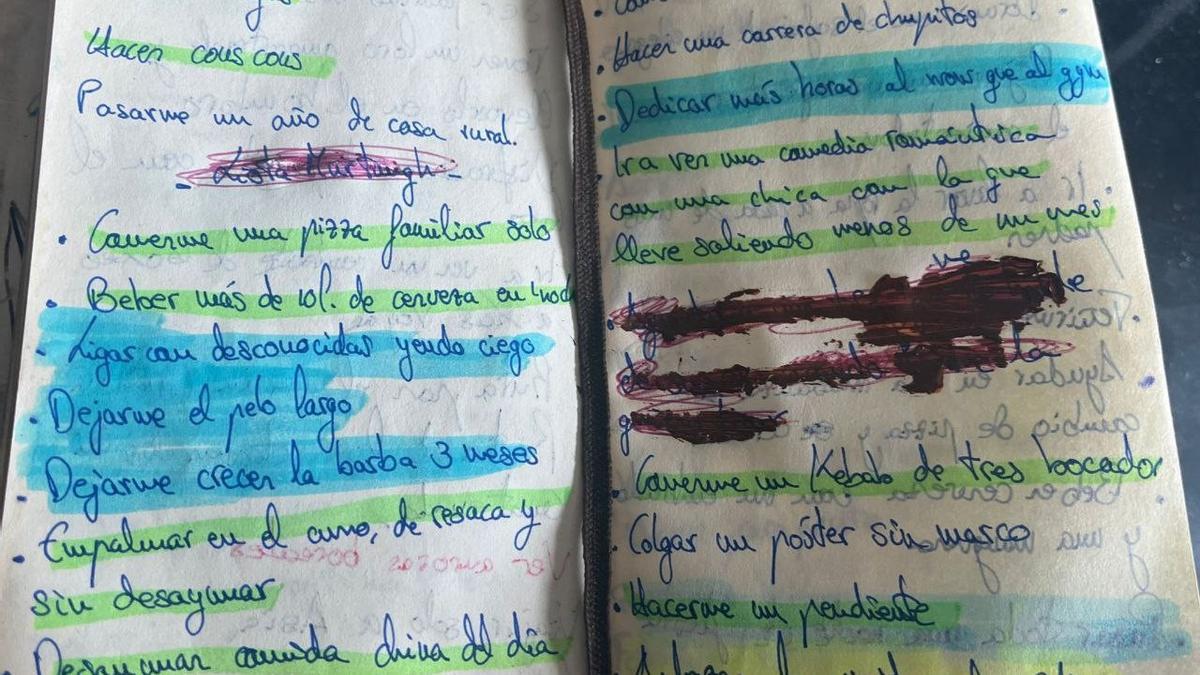 Hacer cous cous
Pasarme un año de casa rural.
- Lista
• Comerme una pizza familiar solo
• Beber más de 10l. de cerveza en 1 noch
• Ligar con desconocidas yendo ciego
• Dejarme el pelo largo
• Dejarme crecer la barba 3 meses
• Empalmar en el curro, de resaca y
sin desayunar
• Desayunar comida china del día
• Hacer una carrera de chupitos
• Dedicar más horas al wow que al gym
• Ir a ver una comedia romántica
con una chica con la que
lleve saliendo menos de un mes
• Comerme un Kebab de tres bocados
• Colgar un póster sin marco
• Hacerme un pendiente